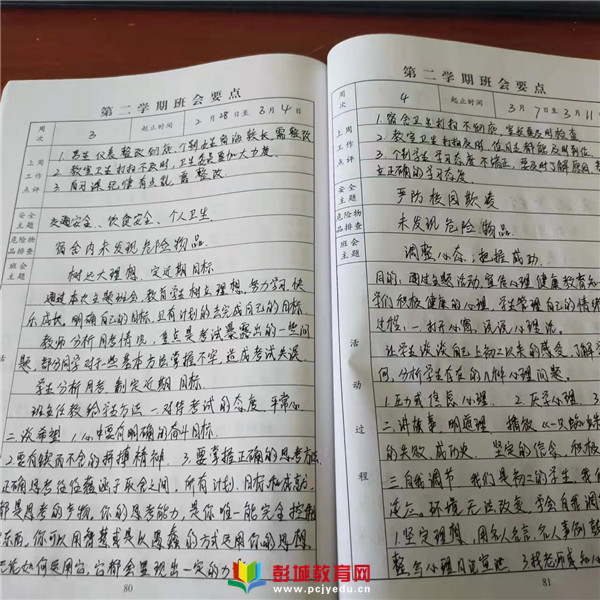 第二学期班会要点
周次 3 起止时间 2月28日至3月4日
上周工作点评
1.男生仪表整改到位,个别女生刘海较长,需整改
2.教室卫生打扫不及时,卫生委员要加大力度。
3.自习课纪律有点乱,需整改.
安全主题 交通安全、饮食安全、个人卫生.
危险物品排查 宿舍内未发现危险物品.
班会主题 树远大理想,定近期目标
活
通过本次主题班会,教育学生树立理想,努力学习,快
乐成长,明确自己的目标,且有计划的去完成自己的目标.
教师分析月考情况,重点是考试暴露出的一些问
题,部分同学对于一些基本方法掌握不牢,造成考试失误.
学生分析月考,制定近期目标.
班主任教给学法方法:一.对待考试的态度:平常心
二.谈希望:1.心里要有明确的奋斗目标.
2.要有锲而不舍的拼搏精神. 3.要掌握正确的思考方法
正确思考往往蕴涵于取舍之间,所有计划、目标和成就,
都是思考的产物,你的思考能力,是你唯一能完全控制
东西,你可以用智慧或是以愚蠢的方式运用你的思想,
无论如何运用它,它都会显现出一定的力
80
第二学期班会要点
周次 4 起止时间 3月7日至3月11
上周工作点评
1.宿舍卫生打扫不到位,室长要及时检查
2.教室卫生打扫及时,值日生都能及时到位.
3.个别学生学习态度不端正,要及时了解原因,
立正确的学习态度
安全主题 严防校园欺凌
危险物品排查 未发现危险物品.
班会主题 调整心态,把握成功.
活动过程
目的:通过主题活动,宣传心理健康教育知
学们积极健康的心理,学生管理自己的情绪
过程:一.打开心窗,说说心理话.
让学生谈谈自己上初二以来的感受,了解学
何,分析学生存在的几种心理问题.
1.压力或焦虑心理 2.厌学心理. 3
二.讲故事 明道理 播放《一只蜘蛛
的失败,成历史. 坚定的信念,积极
三.自我调节 我们是初二的学生,我们
环境无法改变,学会自我调
1.坚定理想,用名人名言,名人事例鼓
整
81
彭城教育网
www.pcjyedu.cn